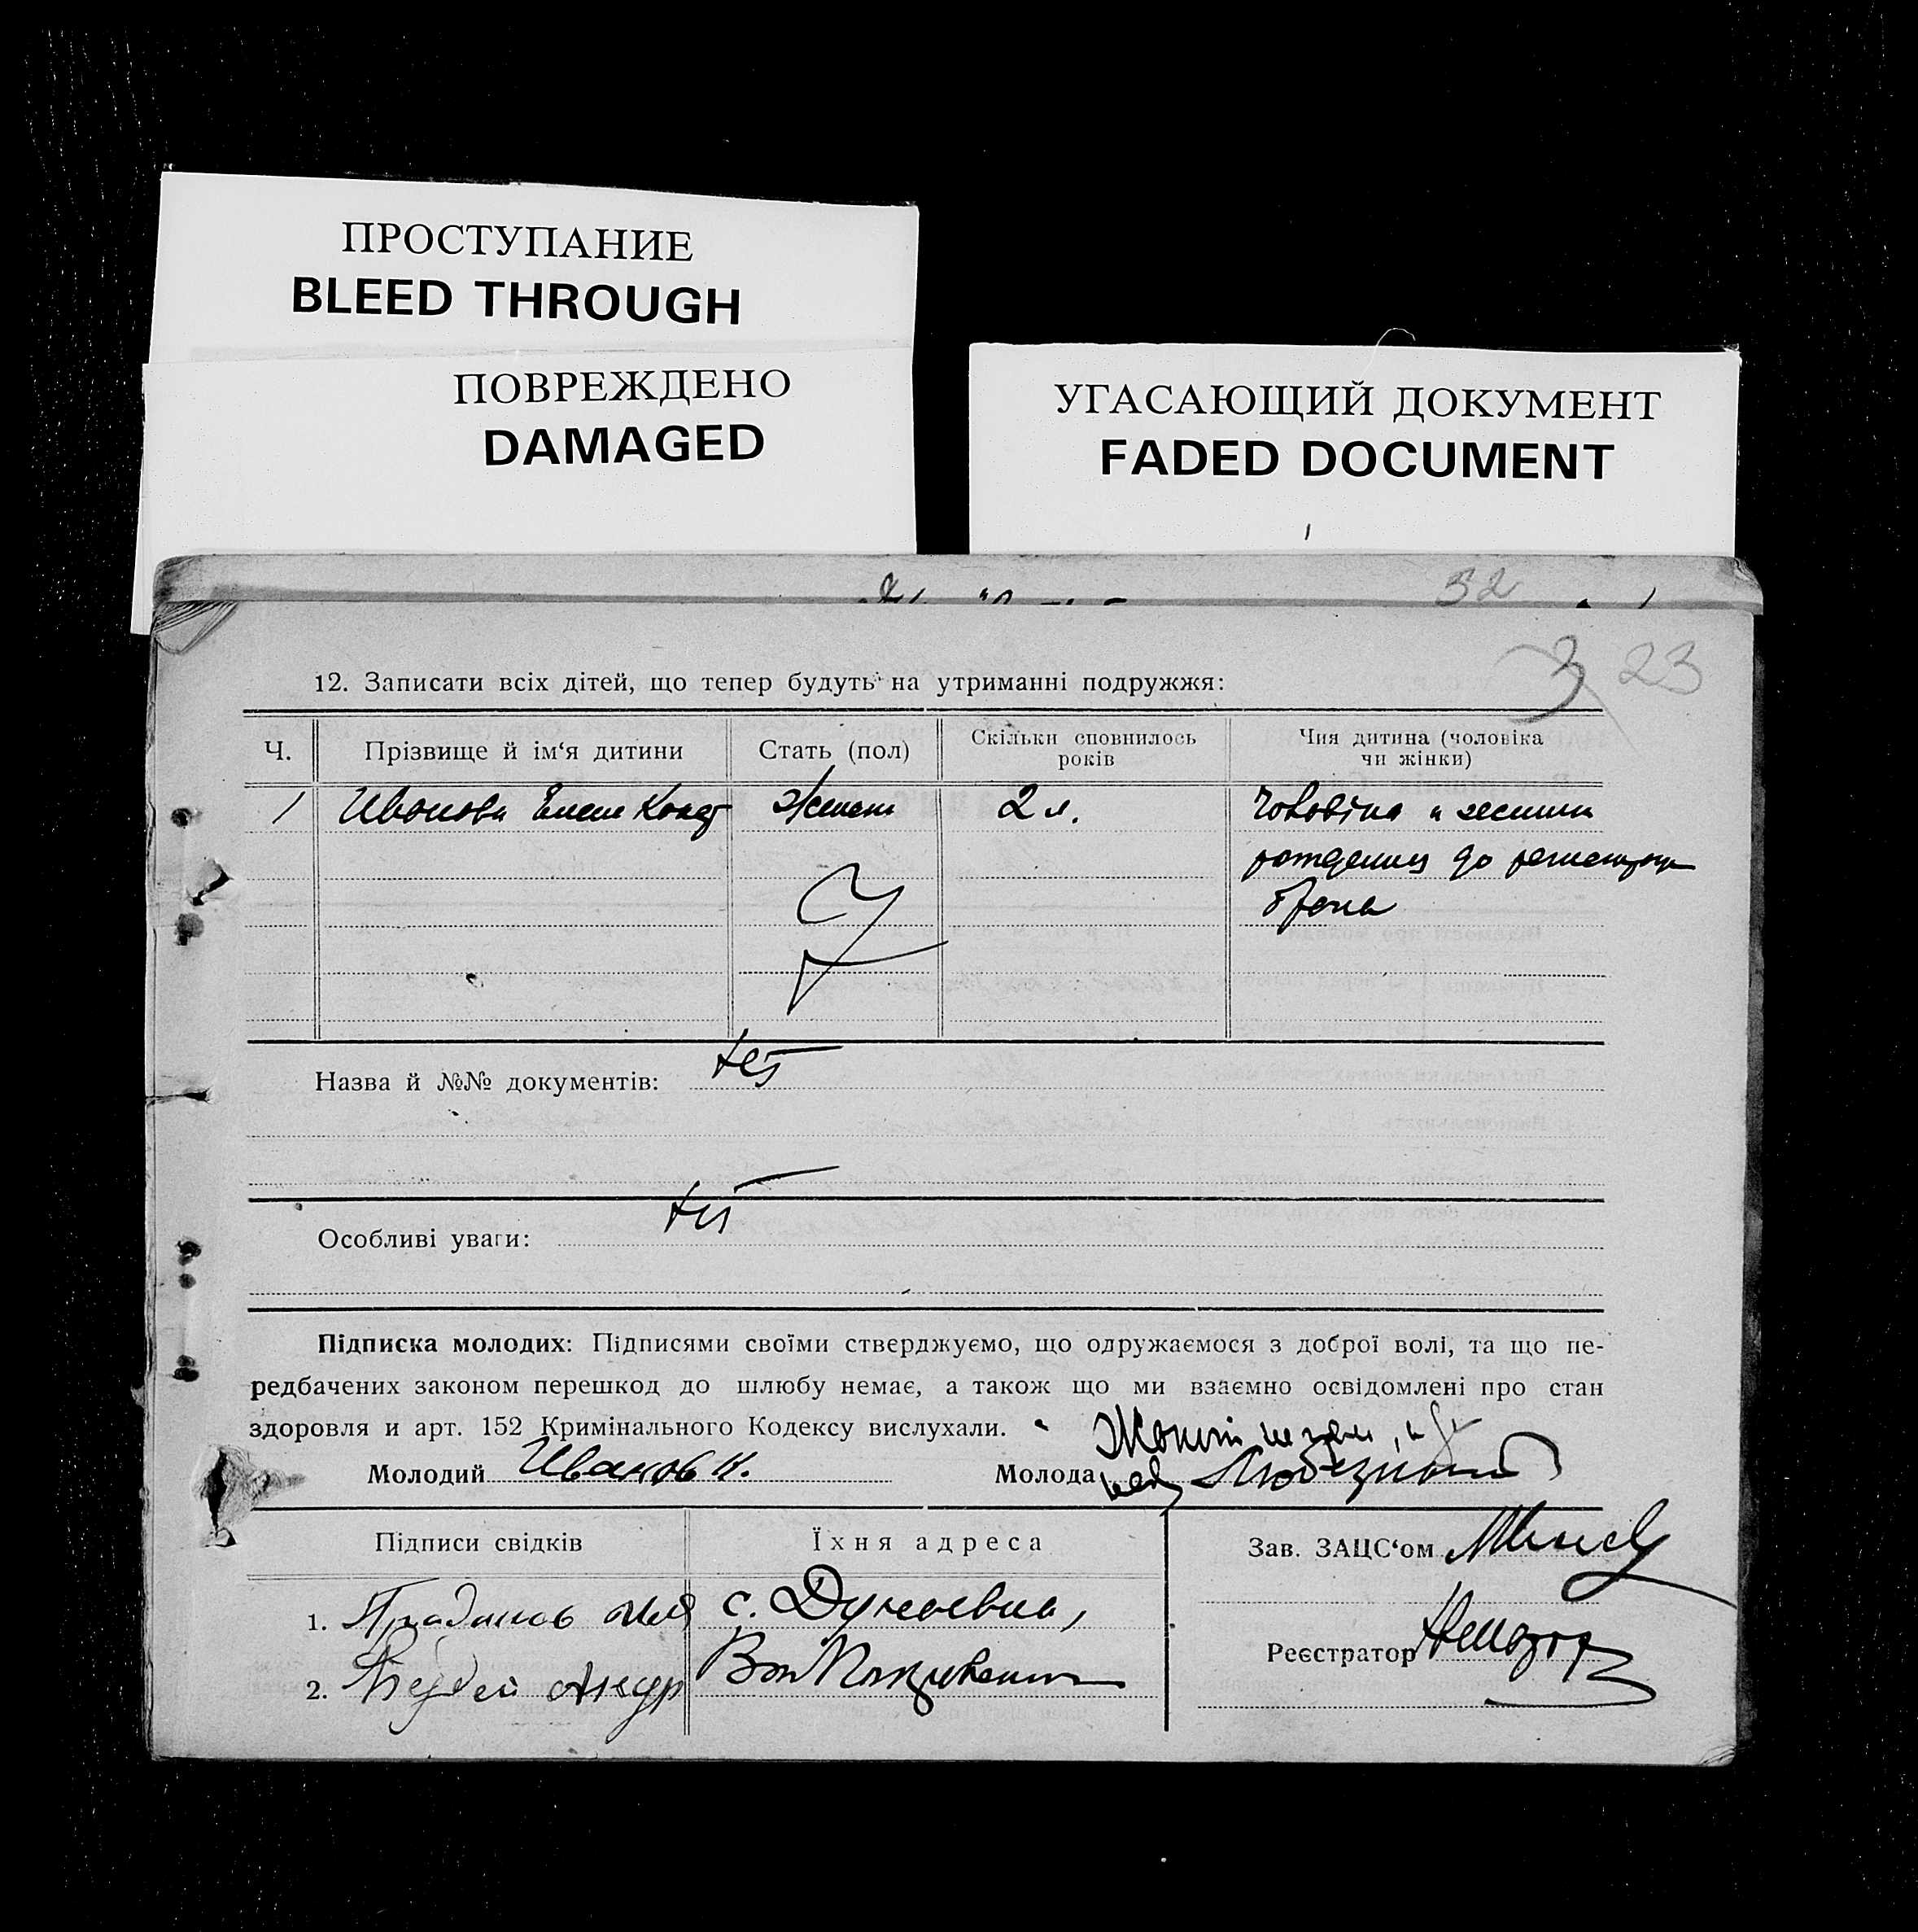 ПРОСТУПАНИЕ
BLEED THROUGH
ПОВРЕЖДЕНО
DAMAGED
УГАСАЮЩИЙ ДОКУМЕНТ
FADED DOCUMENT
32
3 23
12. Записати всіх дітей, що тепер будуть на утриманні подружжя:
Ч. Прізвище й ім‘я дитини Стать (пол) Скільки сповнилось років Чия дитина (чоловіка чи жінки)
1 Иванова Елена Конд Женск 2 л. Чоловіка и
до
брака
Назва й №№ документів:
Особливі уваги:
Підписка молодих: Підписями своїми стверджуємо, що одружаємося з доброї волі, та що пе-
редбачених законом перешкод до шлюбу немає, а також що ми взаємно освідомлені про стан
здоровля и арт. 152 Кримінального Кодексу вислухали.
Молодий Иванов К. Молода
Підписи свідків Їхня адреса Зав. ЗАЦС‘ом
1. с.
Реєстратор
2.